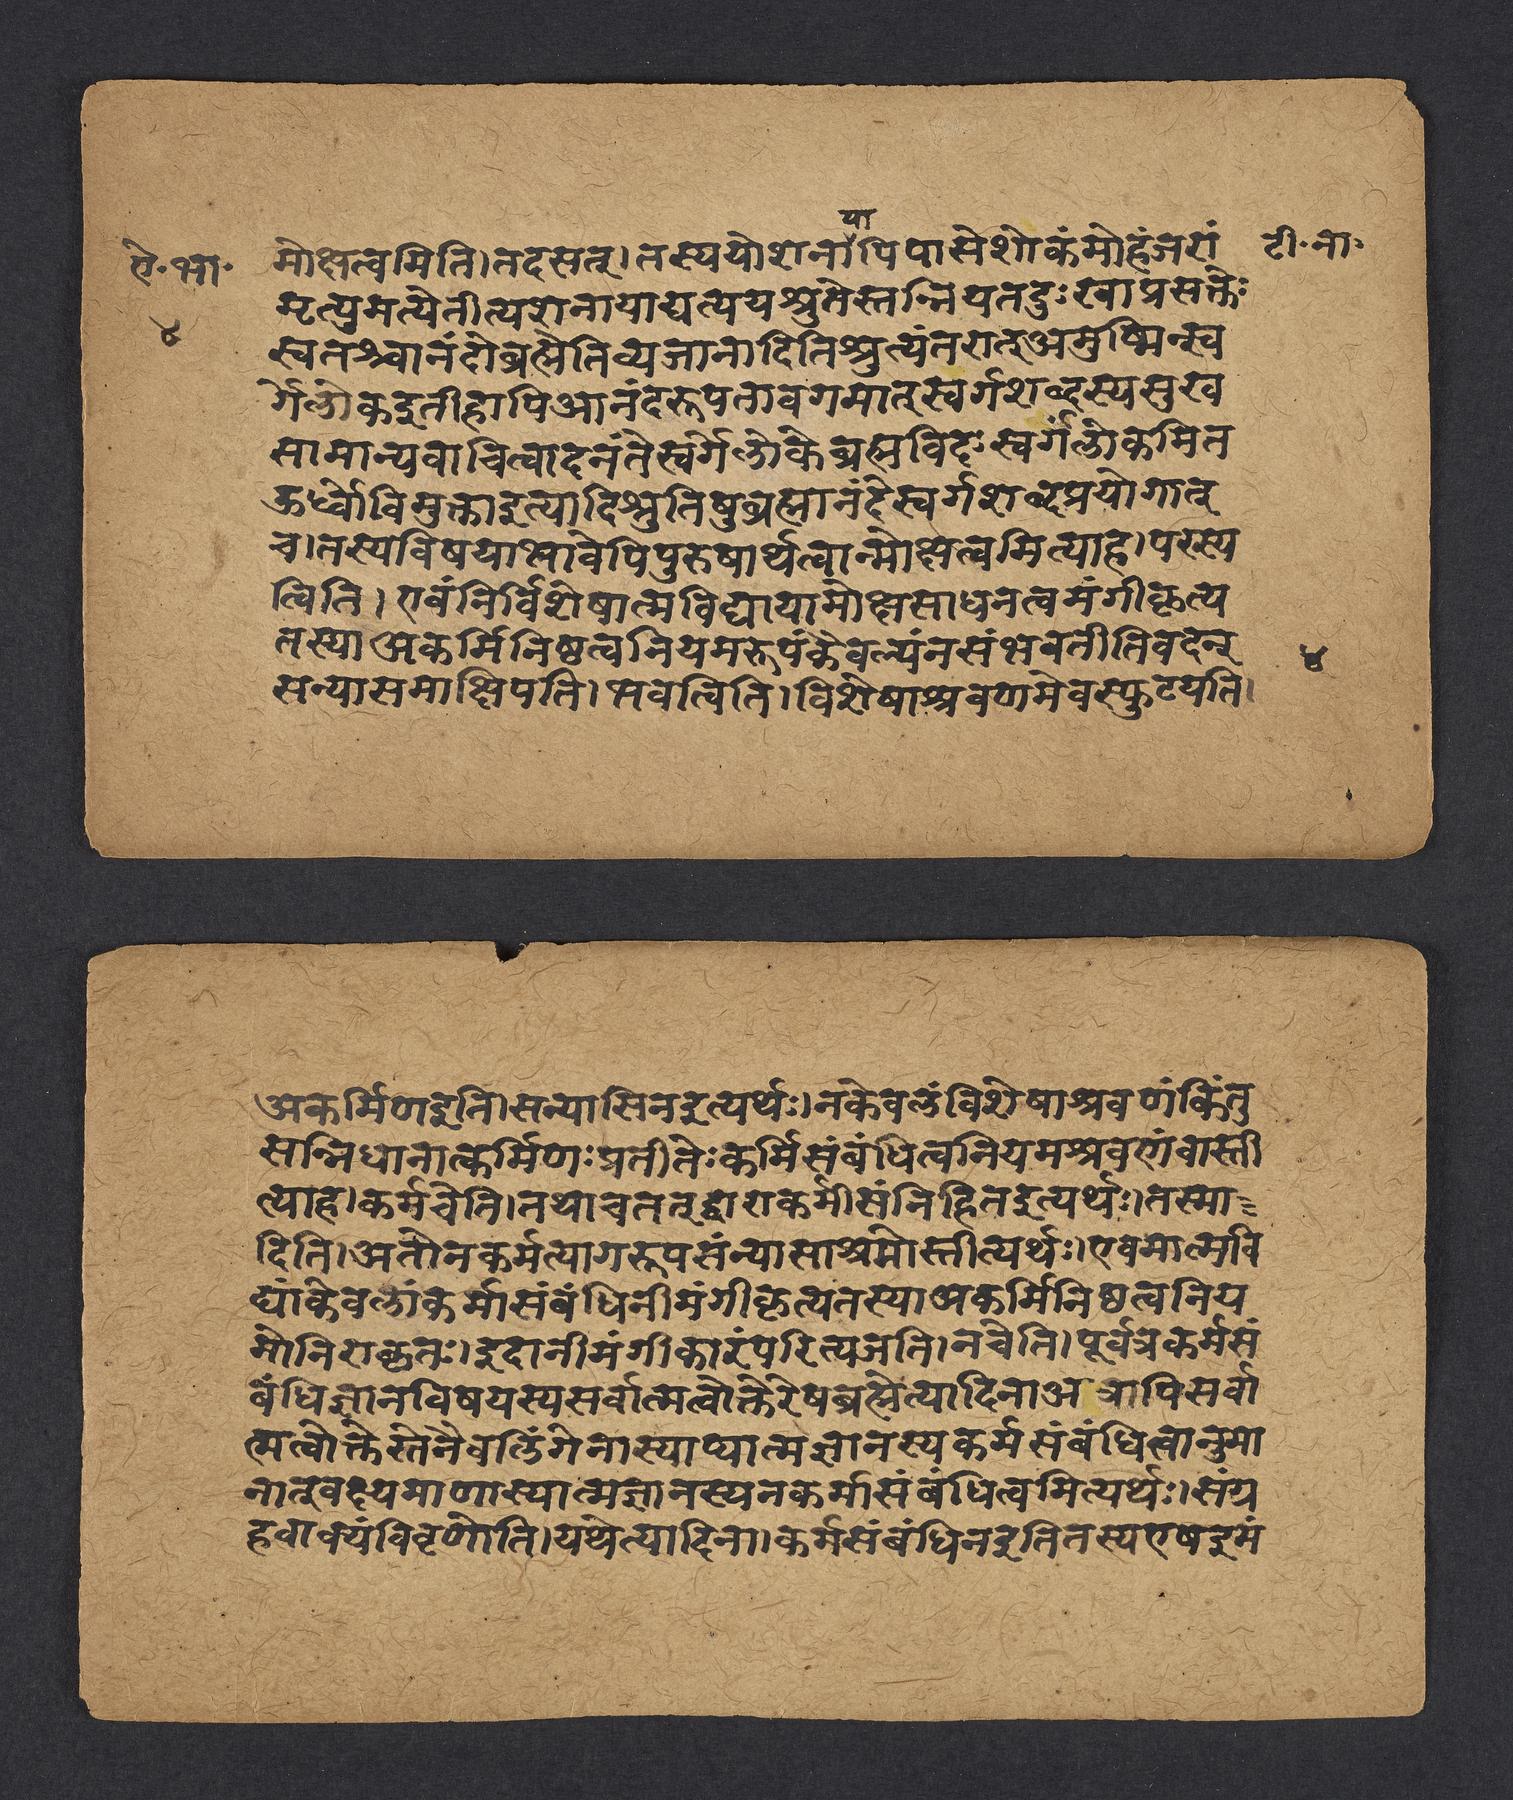 या
ऐ·भा· मोक्षत्वमिति।तदसत्।तस्ययोशनापिपासेशोकंमोहंजरां टी·ना·
मृत्युमत्येतीत्यशनायाद्यत्ययश्रुतेस्तन्नियतदुःखाप्रसक्तेः
४ स्वतश्चानंदोब्रह्मेतिव्यजानादितिश्रुत्यंतरात्अमुष्मिन्स्व
र्गेलोकइतीहापिआनंदरूपतावगमात्स्वर्गशब्दस्यसुख
सामान्यवाचित्वादनंतेस्वर्गेलोकेब्रह्मविदःस्वर्गंलोकमित
ऊर्ध्वाविमुक्ताइत्यादिश्रुतिषुब्रह्मानंदेस्वर्गशब्दप्रयोगात्
च।तस्यविषयाभावेपिपुरुषार्थत्वान्मोक्षत्वमित्याह।परस्य
त्विति।एवंनिर्विशेषात्मविद्यायामोक्षसाधनत्वमंगीकृत्य
तस्याअकर्मिनिष्ठत्वनियमरूपंकैवल्यंनसंभवतीतिवदन् ४
सन्यासमाक्षिपति।भवत्विति।विशेषाश्रवणमेवस्फुटयति।
अकर्मिणइति।सन्यासिनइत्यर्थः।नकेवलंविशेषाश्रवणंकिंतु
सन्निधानात्कर्मिणःप्रतीतेःकर्मिसंबंधित्वनियमश्रवणंवास्ती
त्याह।कर्मचेति।तथाचतत्द्वाराकर्मीसंनिहितइत्यर्थः।तस्मा=
दिति।अतोनकर्मत्यागरूपसंन्यासाश्रमोस्तीत्यर्थः।एवमात्मवि
द्यांकेवलांकर्मासंबंधिनीमंगीकृत्यतस्याअकर्मिनिष्ठत्वनिय
मोनिराकृतः।इदानीमंगीकारंपरित्यजति।नचेति।पूर्वत्रकर्मसं
बंधिज्ञानविषयस्यसर्वात्मत्वोक्तेरेषब्रह्मेत्यादिनाअत्रापिसर्वा
त्मत्वोक्तेस्तेनैवलिंगेनास्याप्यात्मज्ञानस्यकर्मसंबंधित्वानुमा
नात्वक्ष्यमाणास्यात्मज्ञानस्यनकर्मासंबंधित्वमित्यर्थः।संग्र
हवाक्यंविवृणोति।यथेत्यादिना।कर्मसंबंधिनइतितस्यएषइमं